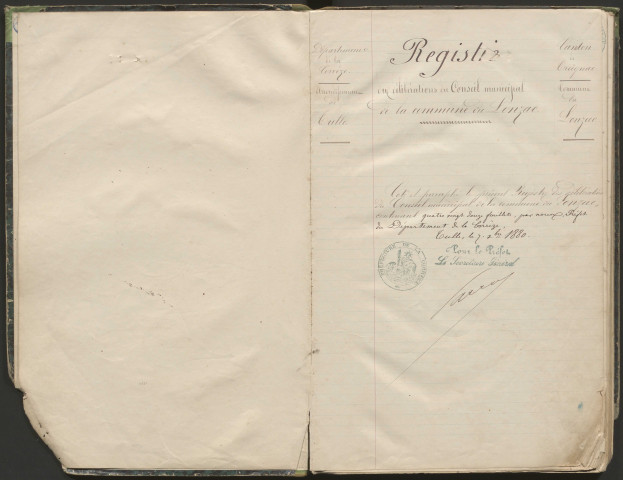 Département
de la
Corrèze
Arrondissement
de
Tulle
Registre
des délibérations du Conseil municipal
de la commune du Lonzac
Canton
de
Treignac
Commune
du
Lonzac
Coté et paraphé le présent Registre des délibérations
du Conseil municipal de la commune du Lonzac,
contenant quatre vingt douze feuillets, par nous, Préfet
du Département de la Corrèze.
Tulle, le 7 1880.
Pour le Préfet
Le Secrétaire Général
PRÉFECTURE DE LA CORRÈZE